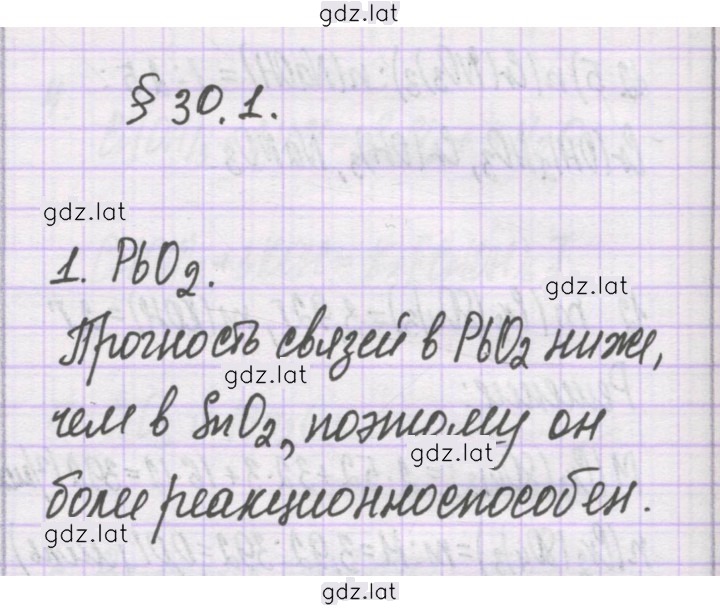 gdz.lat
§ 30.1.
gdz.lat
1. PbO2.
gdz.lat
Прочность связей в PbO2 ниже,
gdz.lat
чем в SnO2, поэтому он
gdz.lat
более реакционноспособен.
gdz.lat
gdz.lat